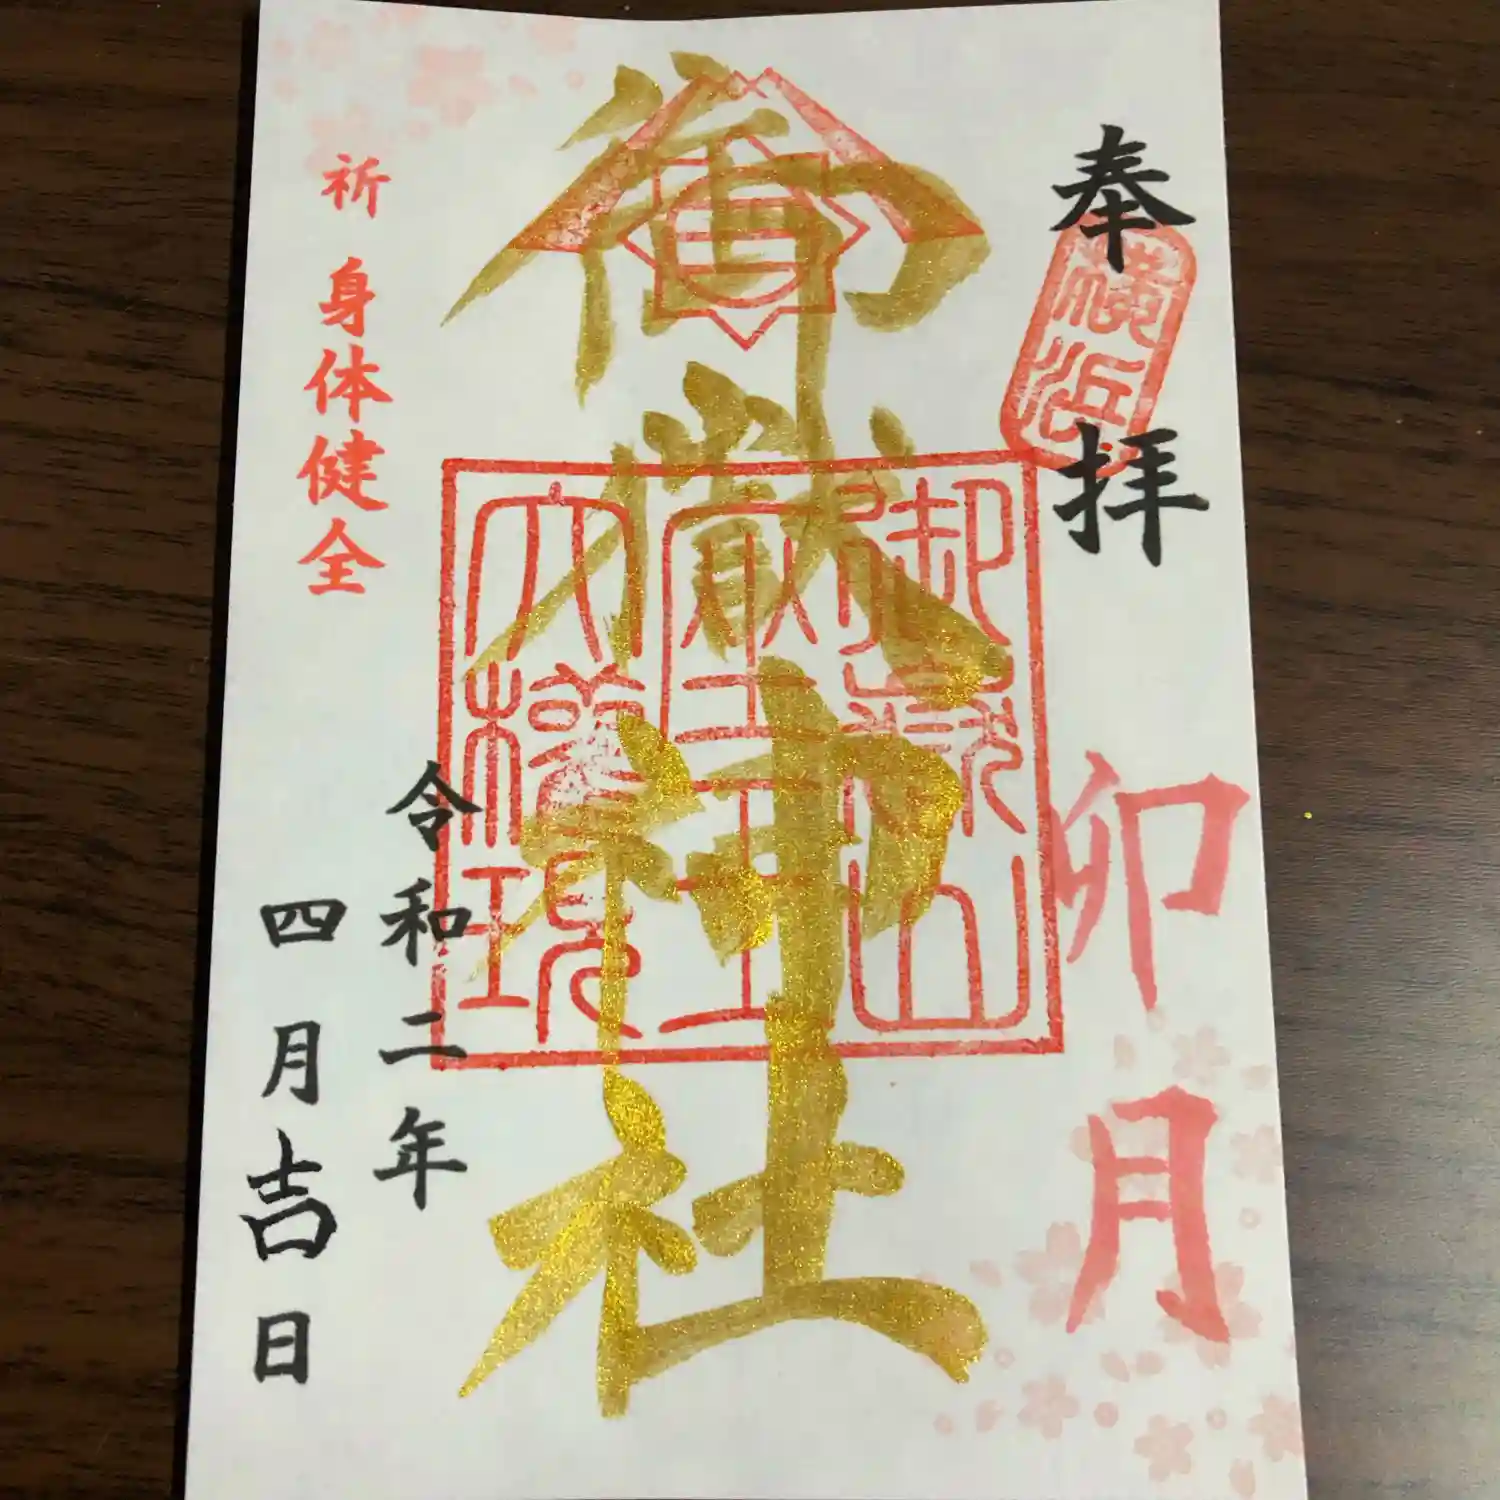 奉拝
横浜
卯月
御嶽神社
御嶽山
蔵王
大権現
令和二年
四月吉日
祈 身体健全